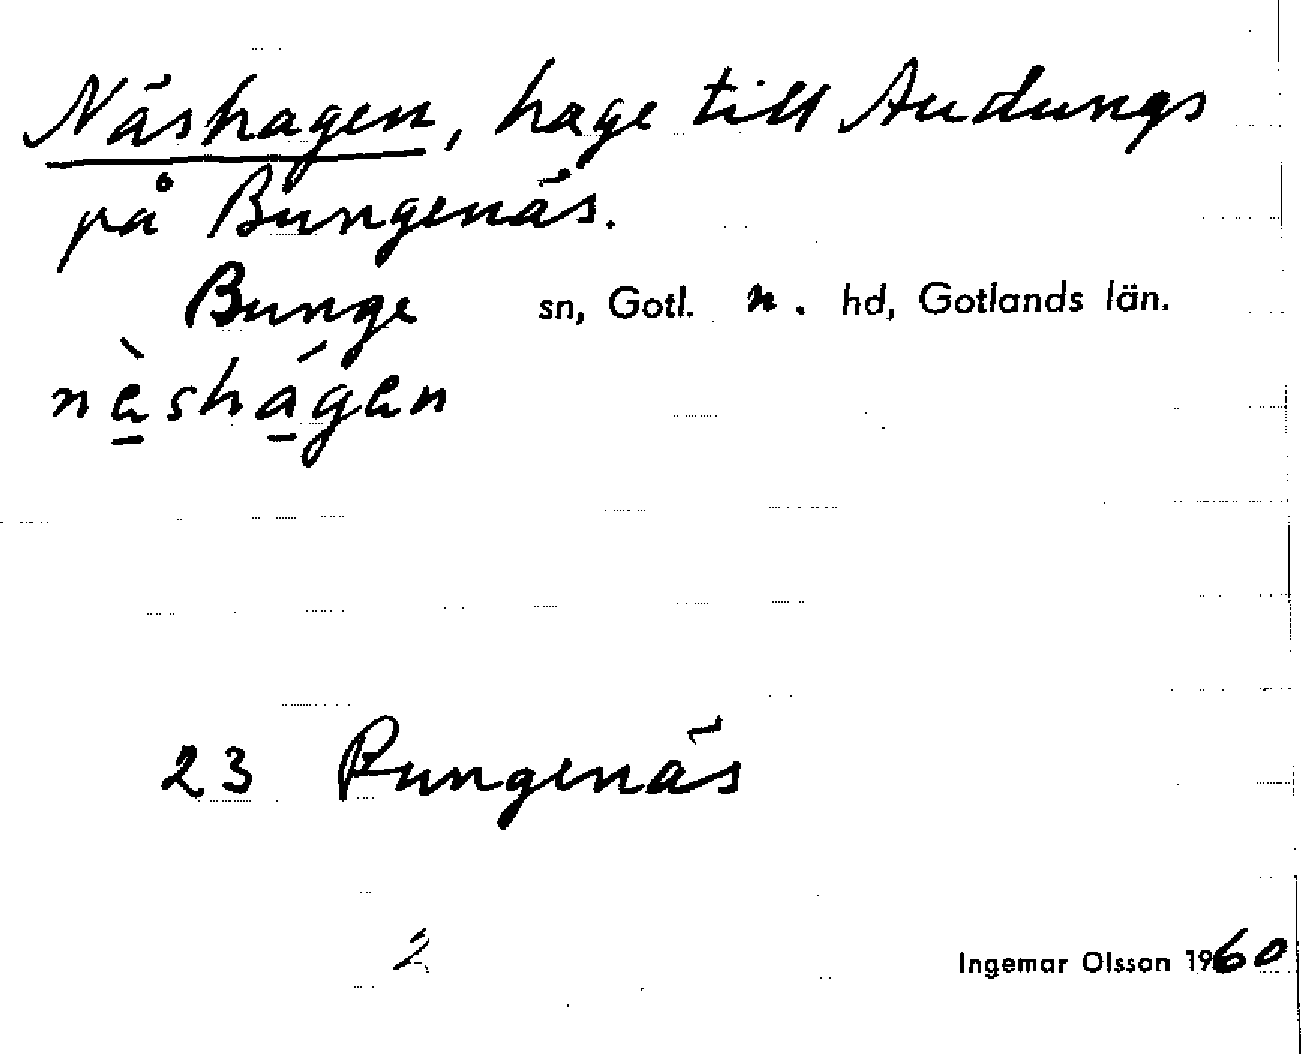 Näshagen, hage till Audungs
på Bungenäs.
Bunge sn, Gotl. n. hd, Gotlands län.
nèshágen
23 Bungenäs
2
Ingemar Olsson 1960